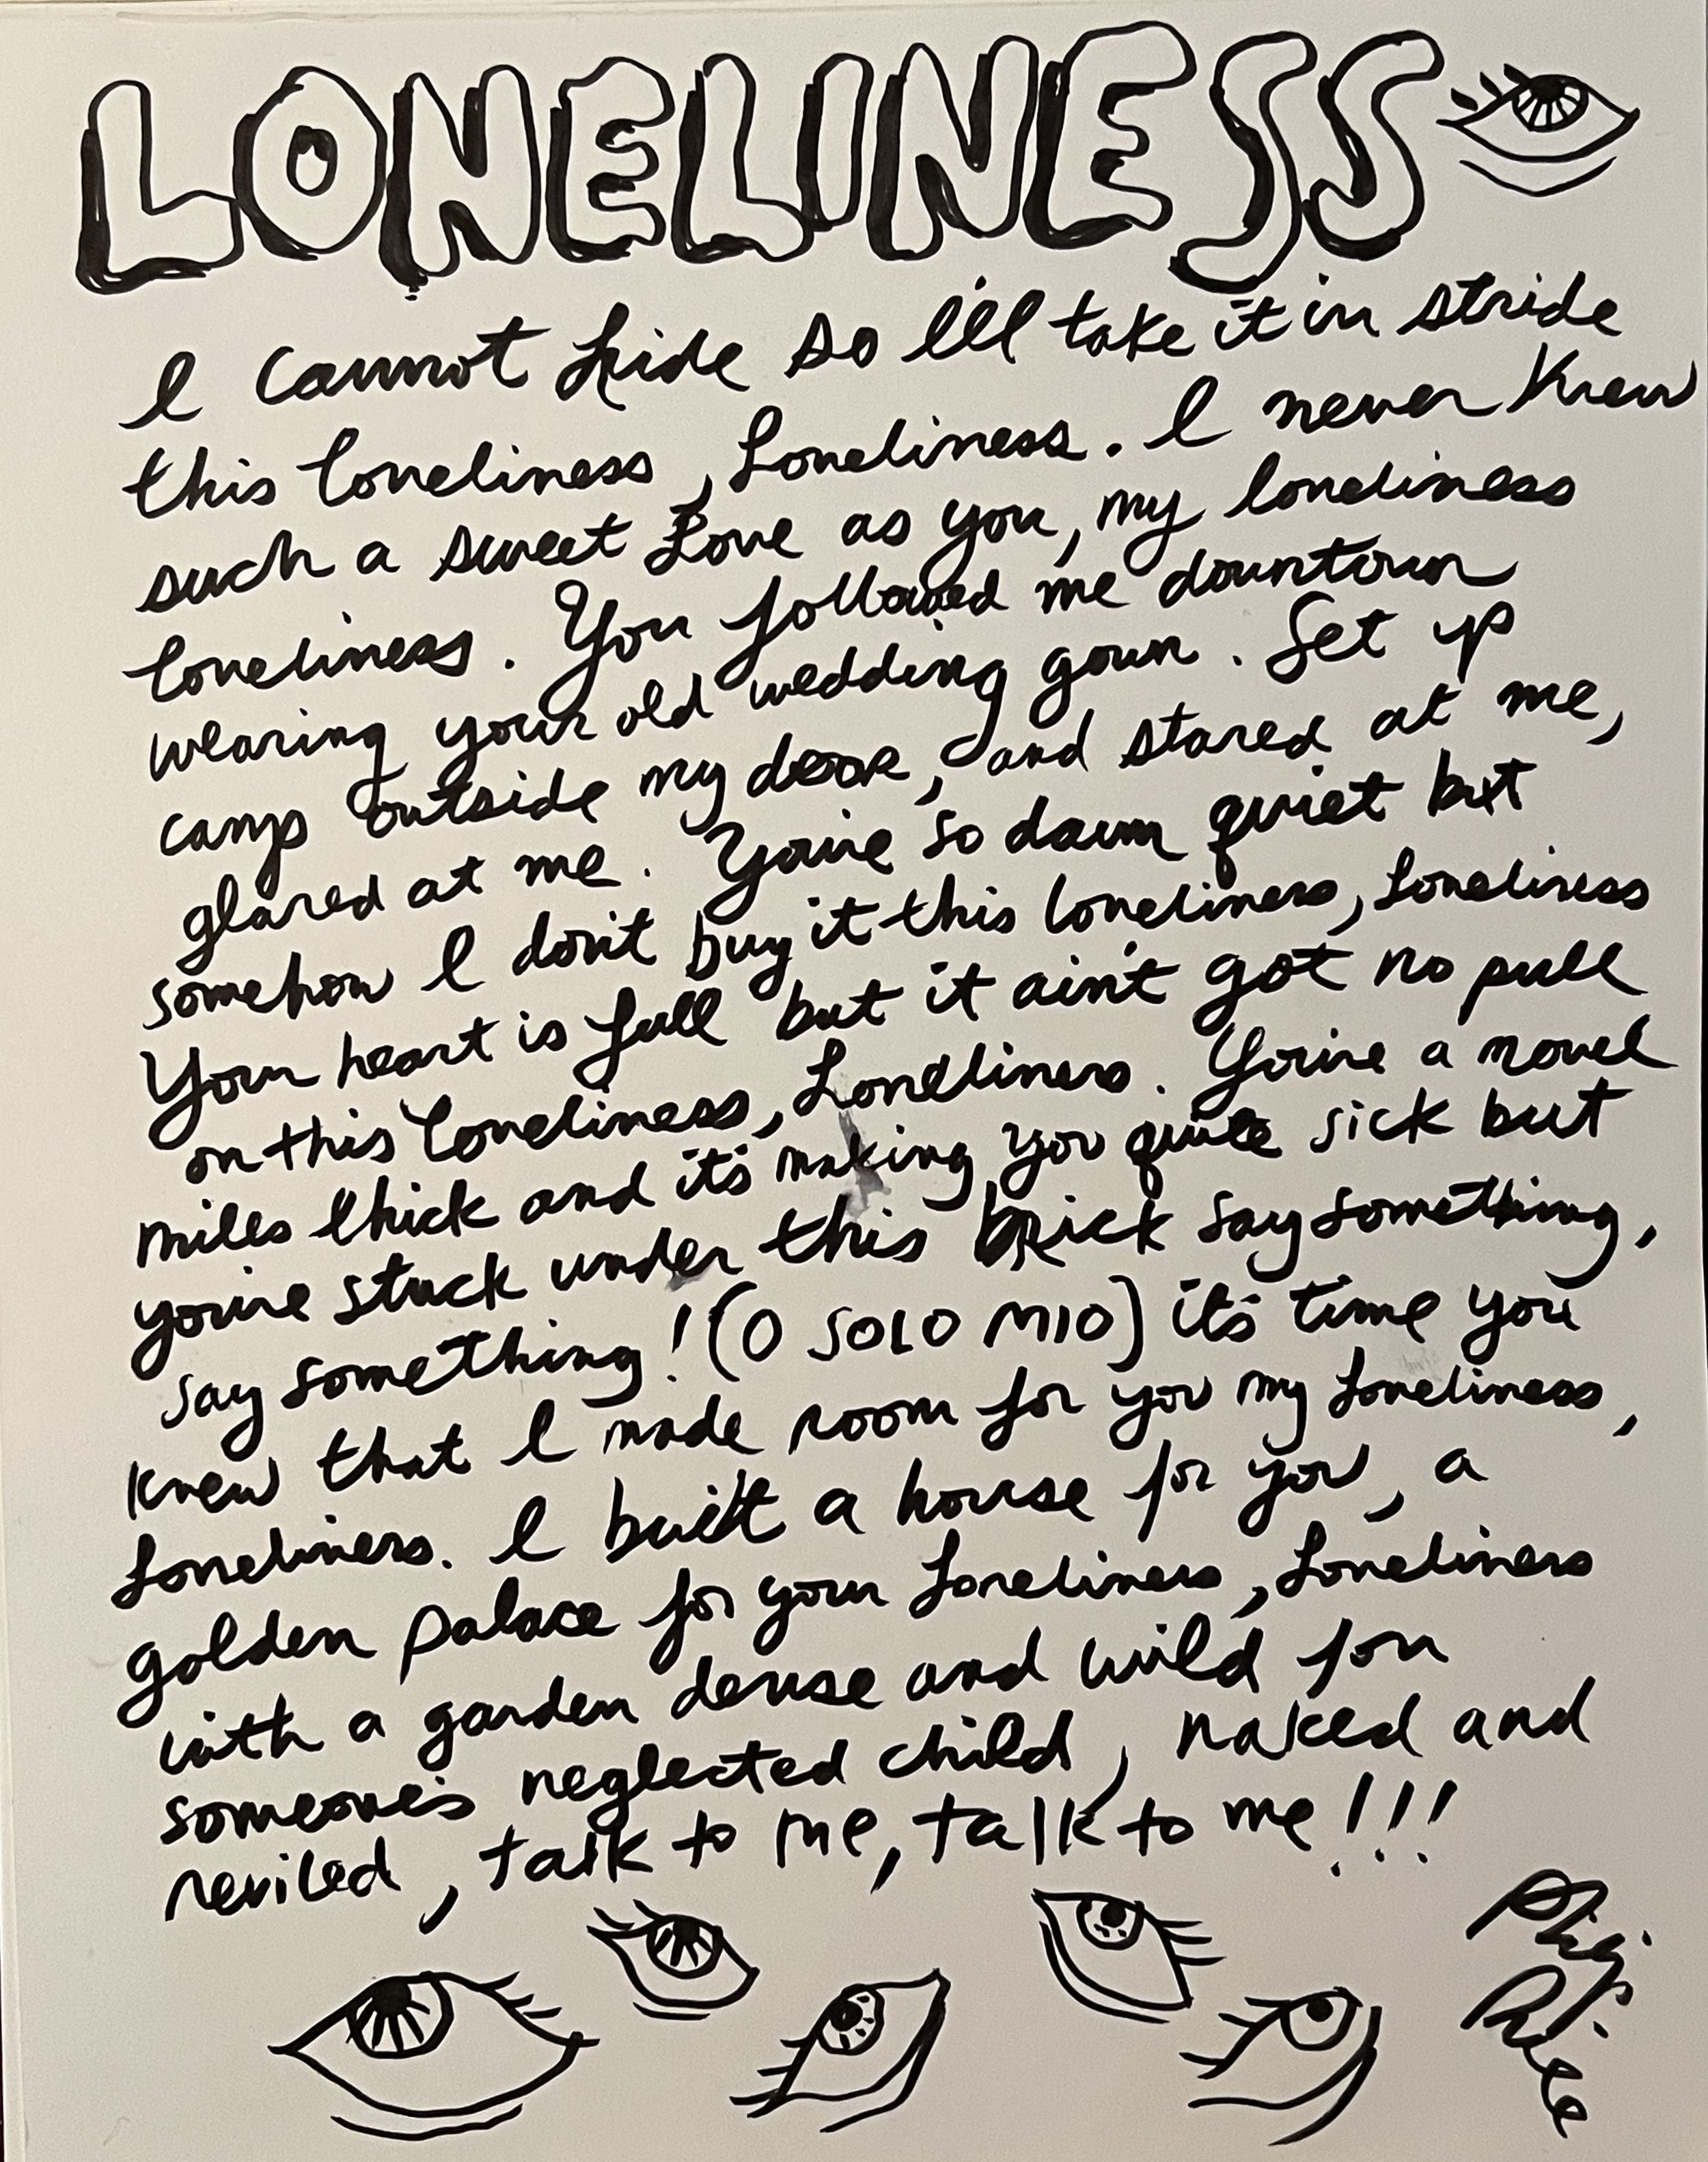 LONELINESS
I cannot hide so I'll take it in stride
this loneliness, Loneliness. I never knew
such a sweet Love as you, my loneliness
loneliness. You followed me downtown
wearing your old wedding gown. Set up
camp outside my door, and stared at me,
glared at me. You're so damn quiet but
somehow I don't buy it this loneliness, Loneliness
Your heart is full but it ain't got no pull
on this loneliness, Loneliness. You're a novel
miles thick and it's making you quite sick but
you're stuck under this brick say something,
say something! (O SOLO MIO) it's time you
knew that I made room for you my Loneliness,
Loneliness. I built a house for you, a
golden palace for your Loneliness, Loneliness
with a garden dense and wild for
someone's neglected child, naked and
reviled, talk to me, talk to me!!!